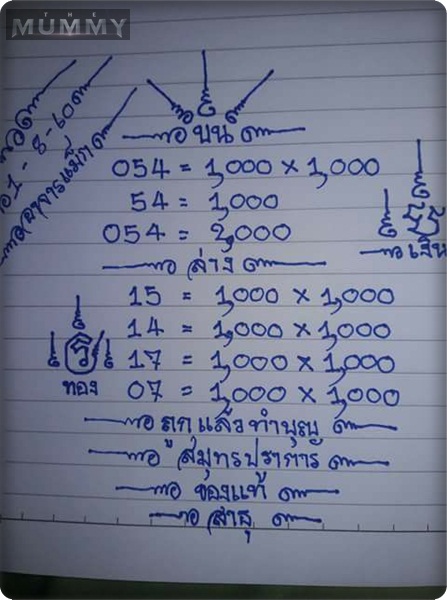 THE
MUMMY
งวด
1-8-60
อาจารแม็ก
บน
054 = 1,000 × 1,000
54 = 1,000
054 = 2,000
ล่าง
15 = 1,000 × 1,000
14 = 1,000 × 1,000
17 = 1,000 × 1,000
07 = 1,000 × 1,000
เงิน
ทอง
ถูกแล้วทำบุญ
สมุทรปราการ
ของแท้
สาธุ